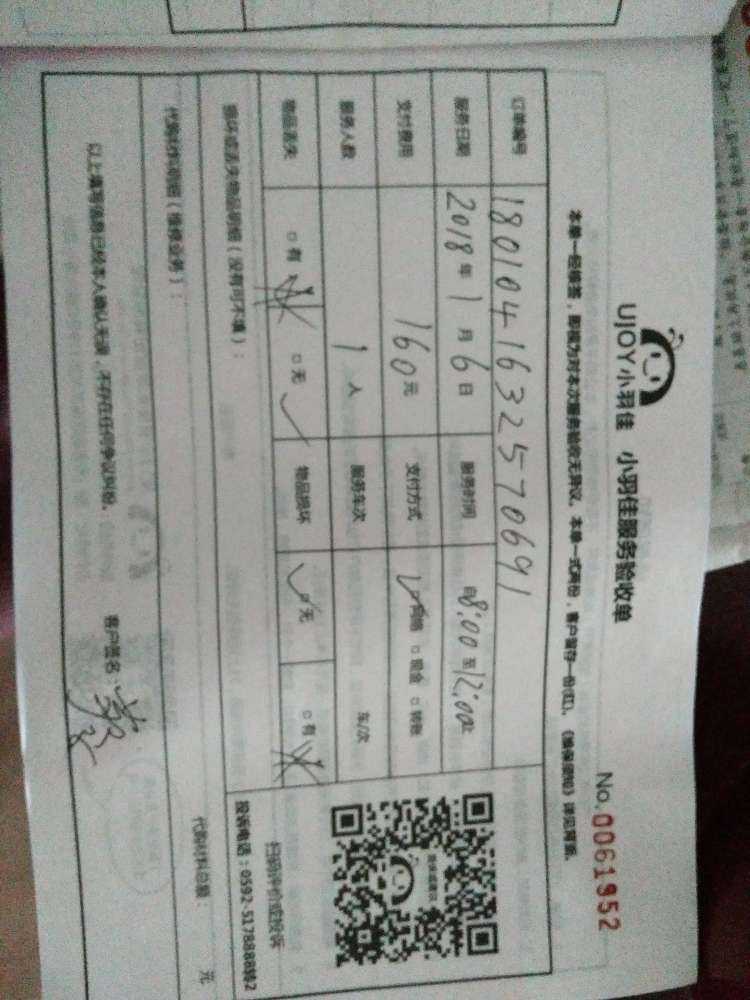 UJOY小羽佳 小羽佳服务验收单
No. 0061952
本单一经签签，即视为对本次服务验收无异议。本单一式两份，客户留存一份(红)。《维保须知》详见背面。
订单编号 18010416325770691
服务日期 2018年1月6日 服务时间 自8:00至12:00止
支付费用 160元 支付方式 ✓网络 □现金 □转账
服务人数 1人 服务车次 车/次
物品丢失 □有 □无✓ 物品损坏 ✓无 □有
损坏或丢失物品明细（没有可不填）：
扫码评价或投诉
投诉电话：0592-5178888转2
代购材料明细（维修业务）：
代购材料总额： 元
以上填写信息已经本人确认无误，不存在任何争议纠纷。
客户签名：